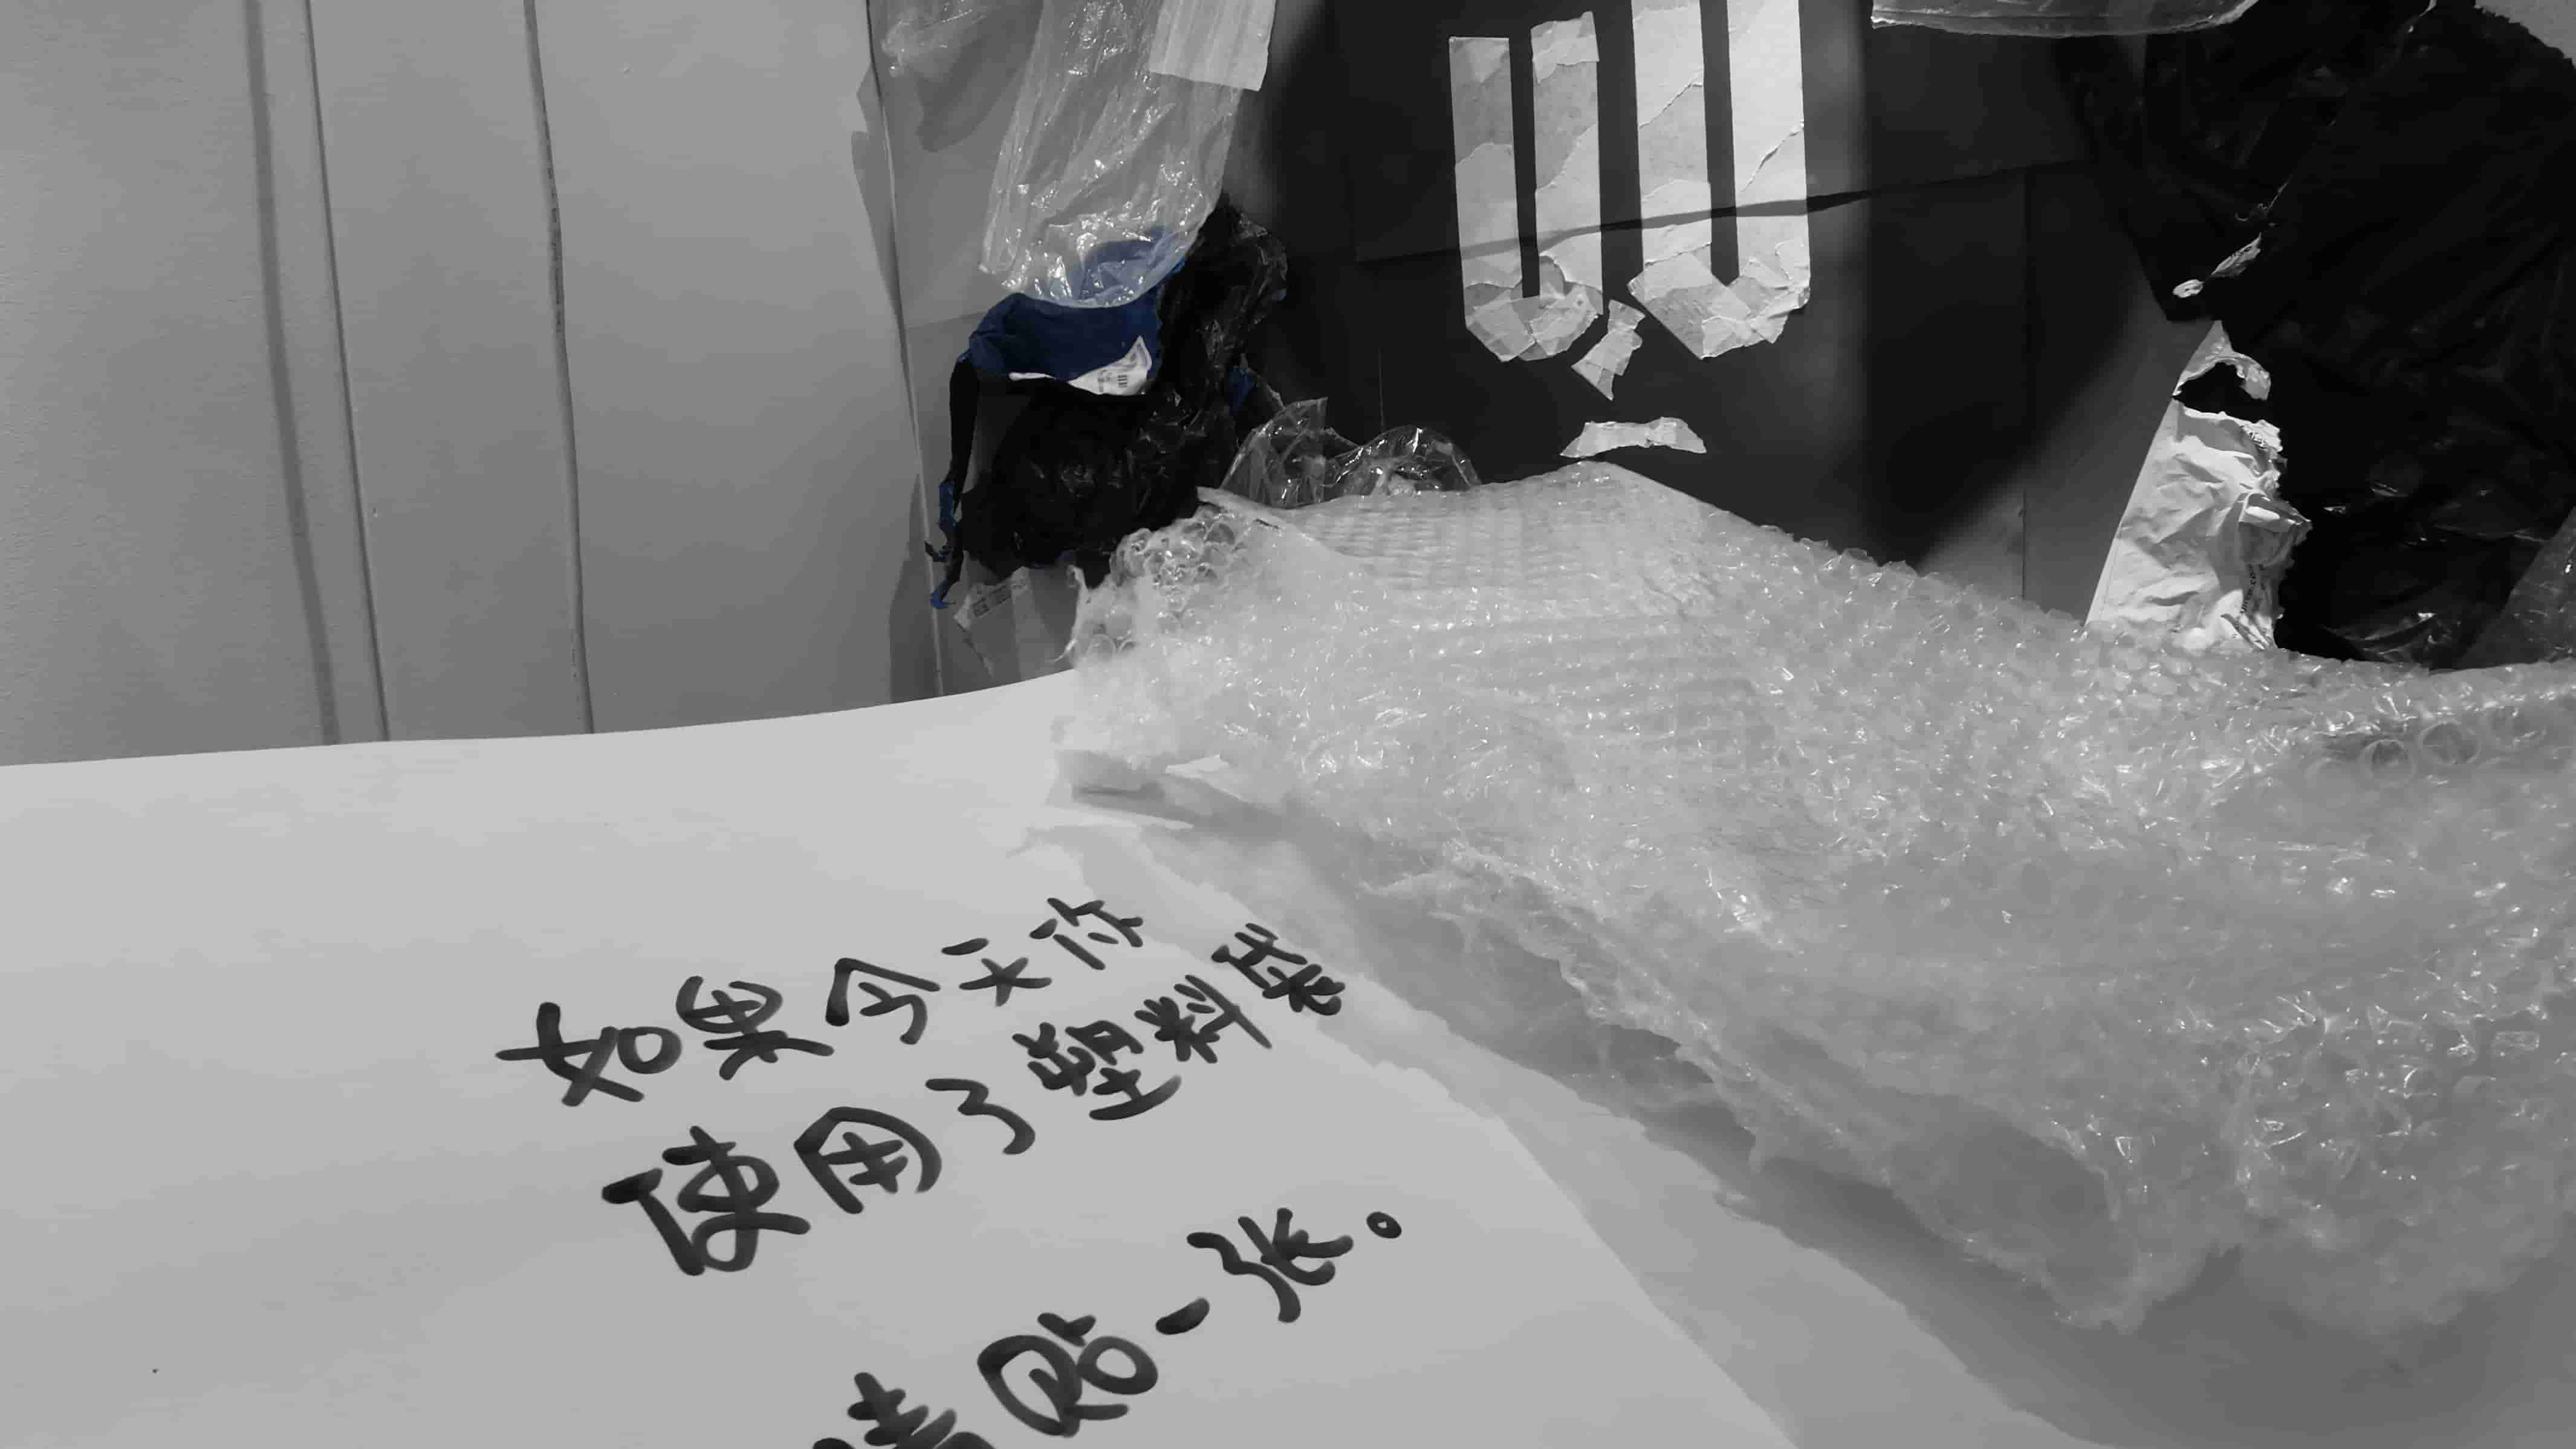 如果今天你
使用了塑料袋
请贴一张。